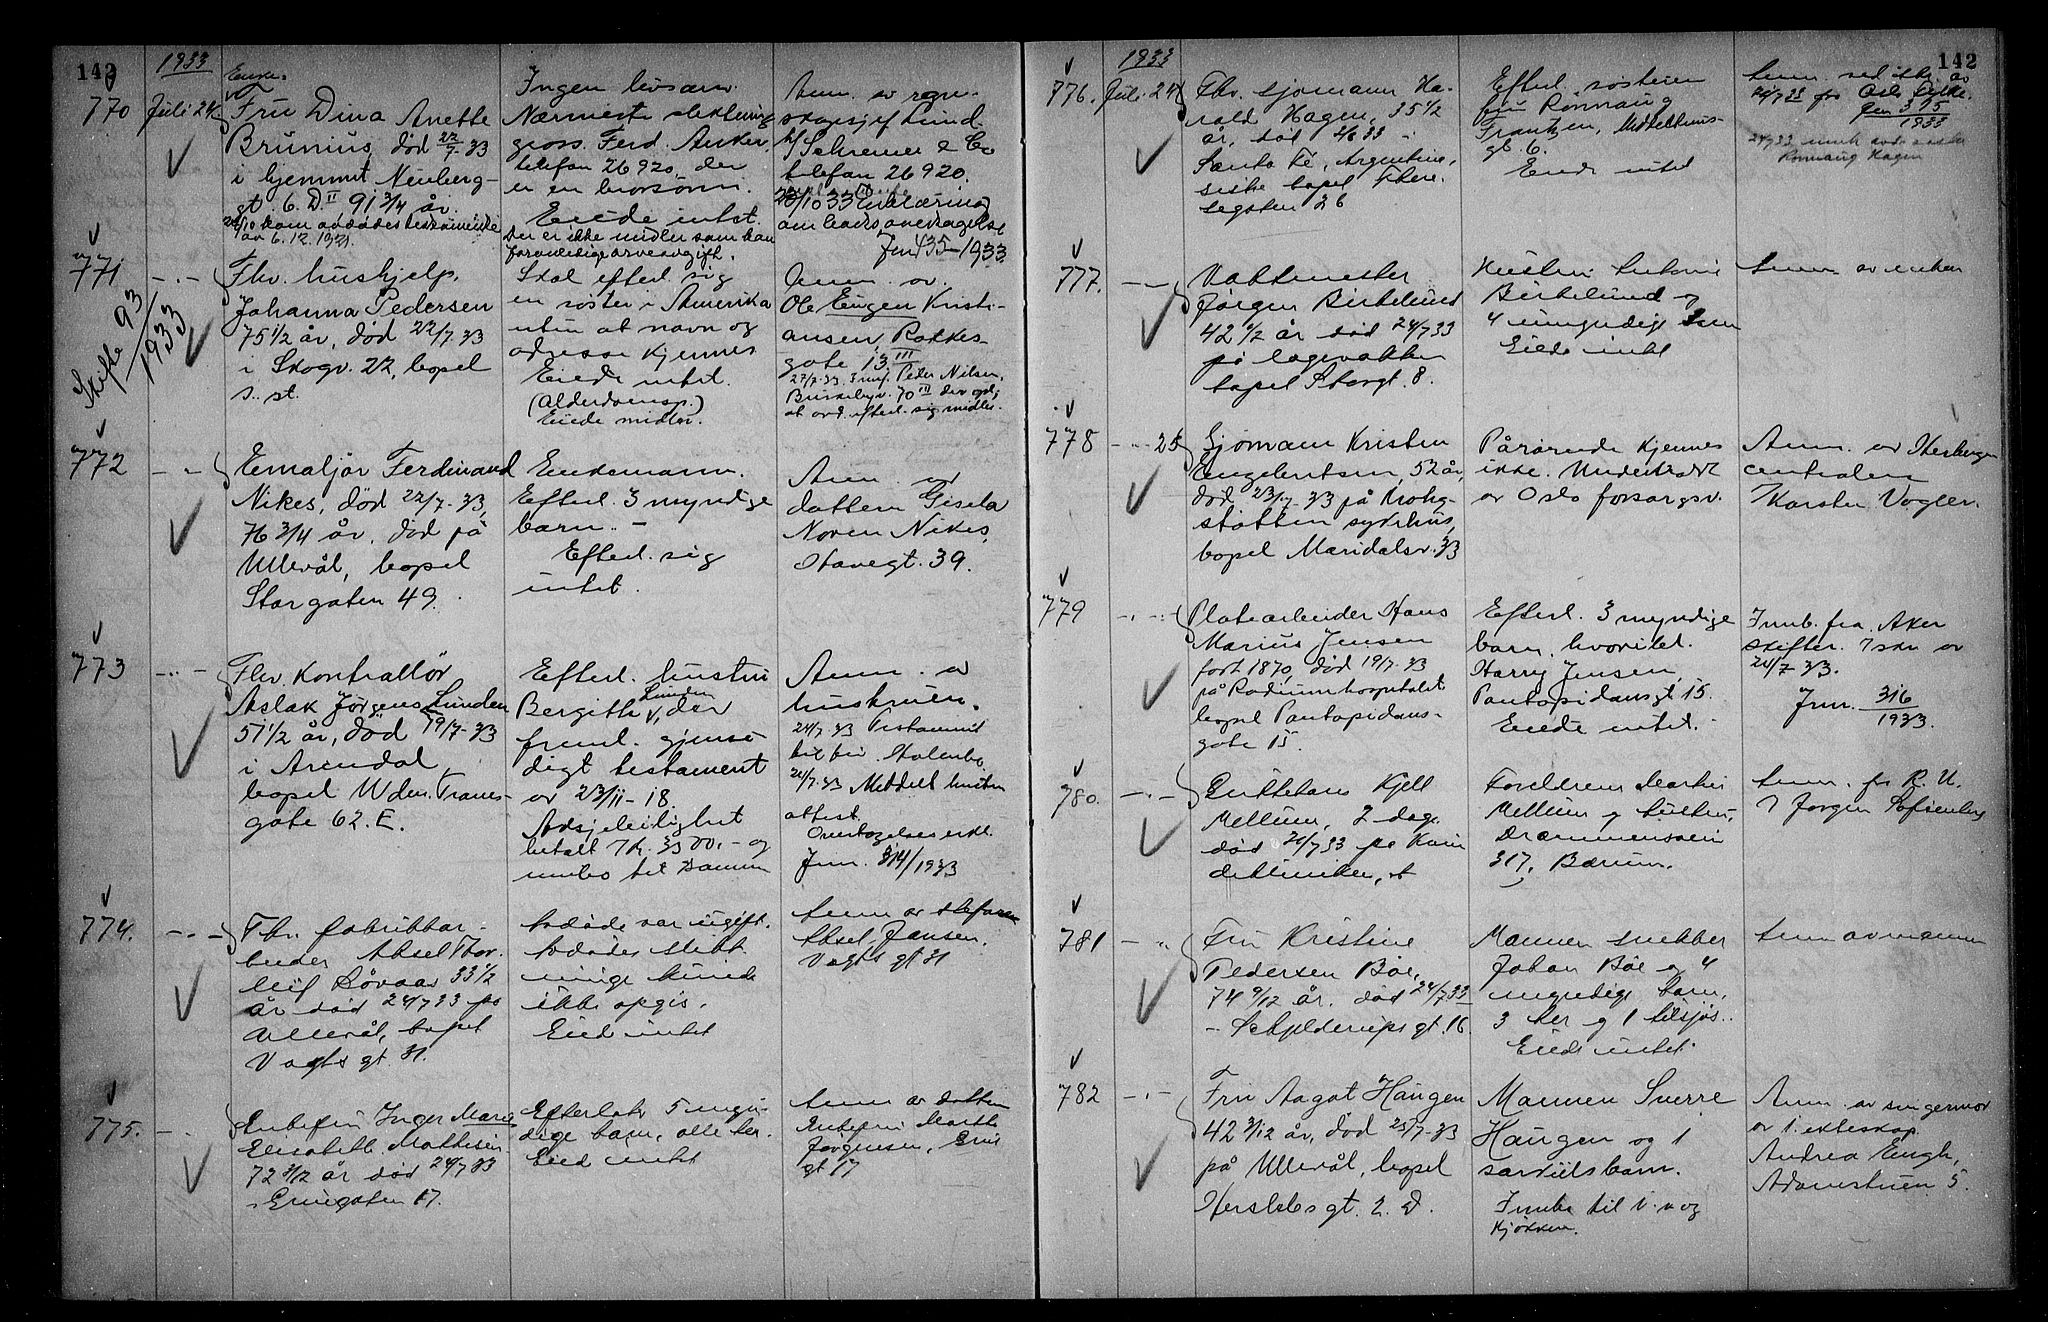 142
1933
770
Juli 24.
Enke.
Fru Dina Anette
Brunius, død 22/7-33
i hjemmet Neuberg-
gt. 6. D. II 91 3/4 år.
av 6.12.1921.
Ingen livsarv.
Nærmeste slektning
gross. Ferd. Anker,
telefon 26920, der
er en brorsønn.
Eiede intet.
Der er ikke midler som kan
Anm. av regn-
skapssjef Lund
h/ Schreiner & Co
telefon 26920.
10 33 Erklæring
om boets overtagelse
Jnr 435-1933.
771
Skifte 93/1933
Fhv. hushjelp.
Johanna Pedersen
75 1/2 år, død 22/7-33
i Skogv. 22, bopel
s. st.
Skal efterl. sig
en søster i Amerika
uten at navn og
adresse kjennes
Eiede intet.
(Alderdomsp.)
Eiede midler.
Anm. av
Ole Eugen Kristi-
ansen, Rakkes-
gate 13 III
27/7-33 Peder Nilsen,
70 III
at avd. efterl. sig midler.
772
Emaljør Ferdinand
Nikes, død 22/7-33,
76 3/4 år, død på
Ullevål, bopel
Storgaten 49.
Enkemann.
Efterl. 3 myndige
barn. -
Efterl. sig
intet.
Anm. av
datteren Gisela
Noren Nikes,
gt. 39.
773
Fhv. kontrollør
Aslak Jørgens Lunden
51 1/2 år, død 19/7-33
i Arendal
bopel Wdm. Tranes-
gate 62. E.
Efterl. hustru
Bergithe Lunden, der
freml. gjensi-
digt testament
av 23/11-18.
Adsjeleilighet
betalt Kr. 3500,- og
innbo til samme
Anm. av
hustruen.
24/7-33 Testament
33 Meddelt hustru
attest.
Overtagelseserkl.
Jnr. 314/1933
774.
Fhv. fabrikkar-
beider Aksel Thor-
leif Løvaas 33 1/2
år død 24/7 33 på
Ullevål, bopel
Vogts gt 31.
Avdøde var ugift.
Avdødes slekt-
ninge kunde
ikke opgis.
Eied intet
Anm av stefaren
Aksel Jansen,
Vogts gt 31
775.
Enkefru Inger Marie
Elisabeth Mathisen
72 år død 24/7 33
17.
Efterlot 5 myn-
dige barn, alle her.
Eied intet
Anm av datteren
Enkefru Marthe
Jørgensen,
gt 17
142
1933
776.
Juli 24
Fhv. sjømann Ha-
rald Hagen, 35 1/2
år, død 33 i
Santa Fe, Argentina,
siste bopel There-
segaten 26
Efterl. søsteren
fru Ronnaug
Frantzen, Middelthuns-
gt. 6.
Eiede intet
Anm. ved skr. av
24/7 33 fra Oslo Fylke.
Jnr 315/1933
Ronnaug Hagen
777.
Vaktmester
Jørgen Birkelund
42 år død 24/7 33
på lægevakten
bopel Storgt. 8.
Hustru
Birkelund og
4 umyndige barn
Eiede intet
Anm av enken
778
25
Sjømann Kristen
Engebretsen, 52 år,
død 23/7-33 på Krohg-
støtten sykehus,
bopel Maridalsv. 33
Pårørende kjennes
ikke. Understøttet
av Oslo forsorgsv.
Anm. av Herberge-
centralen
v/Karsten Vogler.
779
Platearbeider Hans
Marius Jensen
født 1870, død 19/7-33
på Radiumhospitalet
bopel Pontopidans-
gate 15.
Efterl. 3 myndige
barn, hvoribl.
Harry Jensen,
Pontopidansgt 15.
Eiede intet.
Innb. fra Aker
skifter. skr av
33.
Jnr. 316/1933.
780.
Guttebarn Kjell
Mellum, 2 dage
død 33 på Kvin-
deklinikken,
Foreldrene
Mellum og hustru,
Drammensveien
317, Bærum.
Anm. fra R. H.
v Jørgen
781
Fru Kristine
Pedersen Bøe,
74 9/12 år, død 24/7 33
Schjelderups gt. 16
Mannen snekker
Johan Bøe og 4
myndige barn,
3 her og 1 tilsjøs.
Eiede intet
Anm av mannen
782
Fru Aagot Haugen
42 år, død 25/7-33
på Ullevål, bopel
Herslebs gt. 2. D.
Mannen Sverre
Haugen og 1
særkuldsbarn.
Innbo til 1. v og
kjøkken.
Anm. av svigermor
av 1. ekteskap
Andrea Engh,
5.